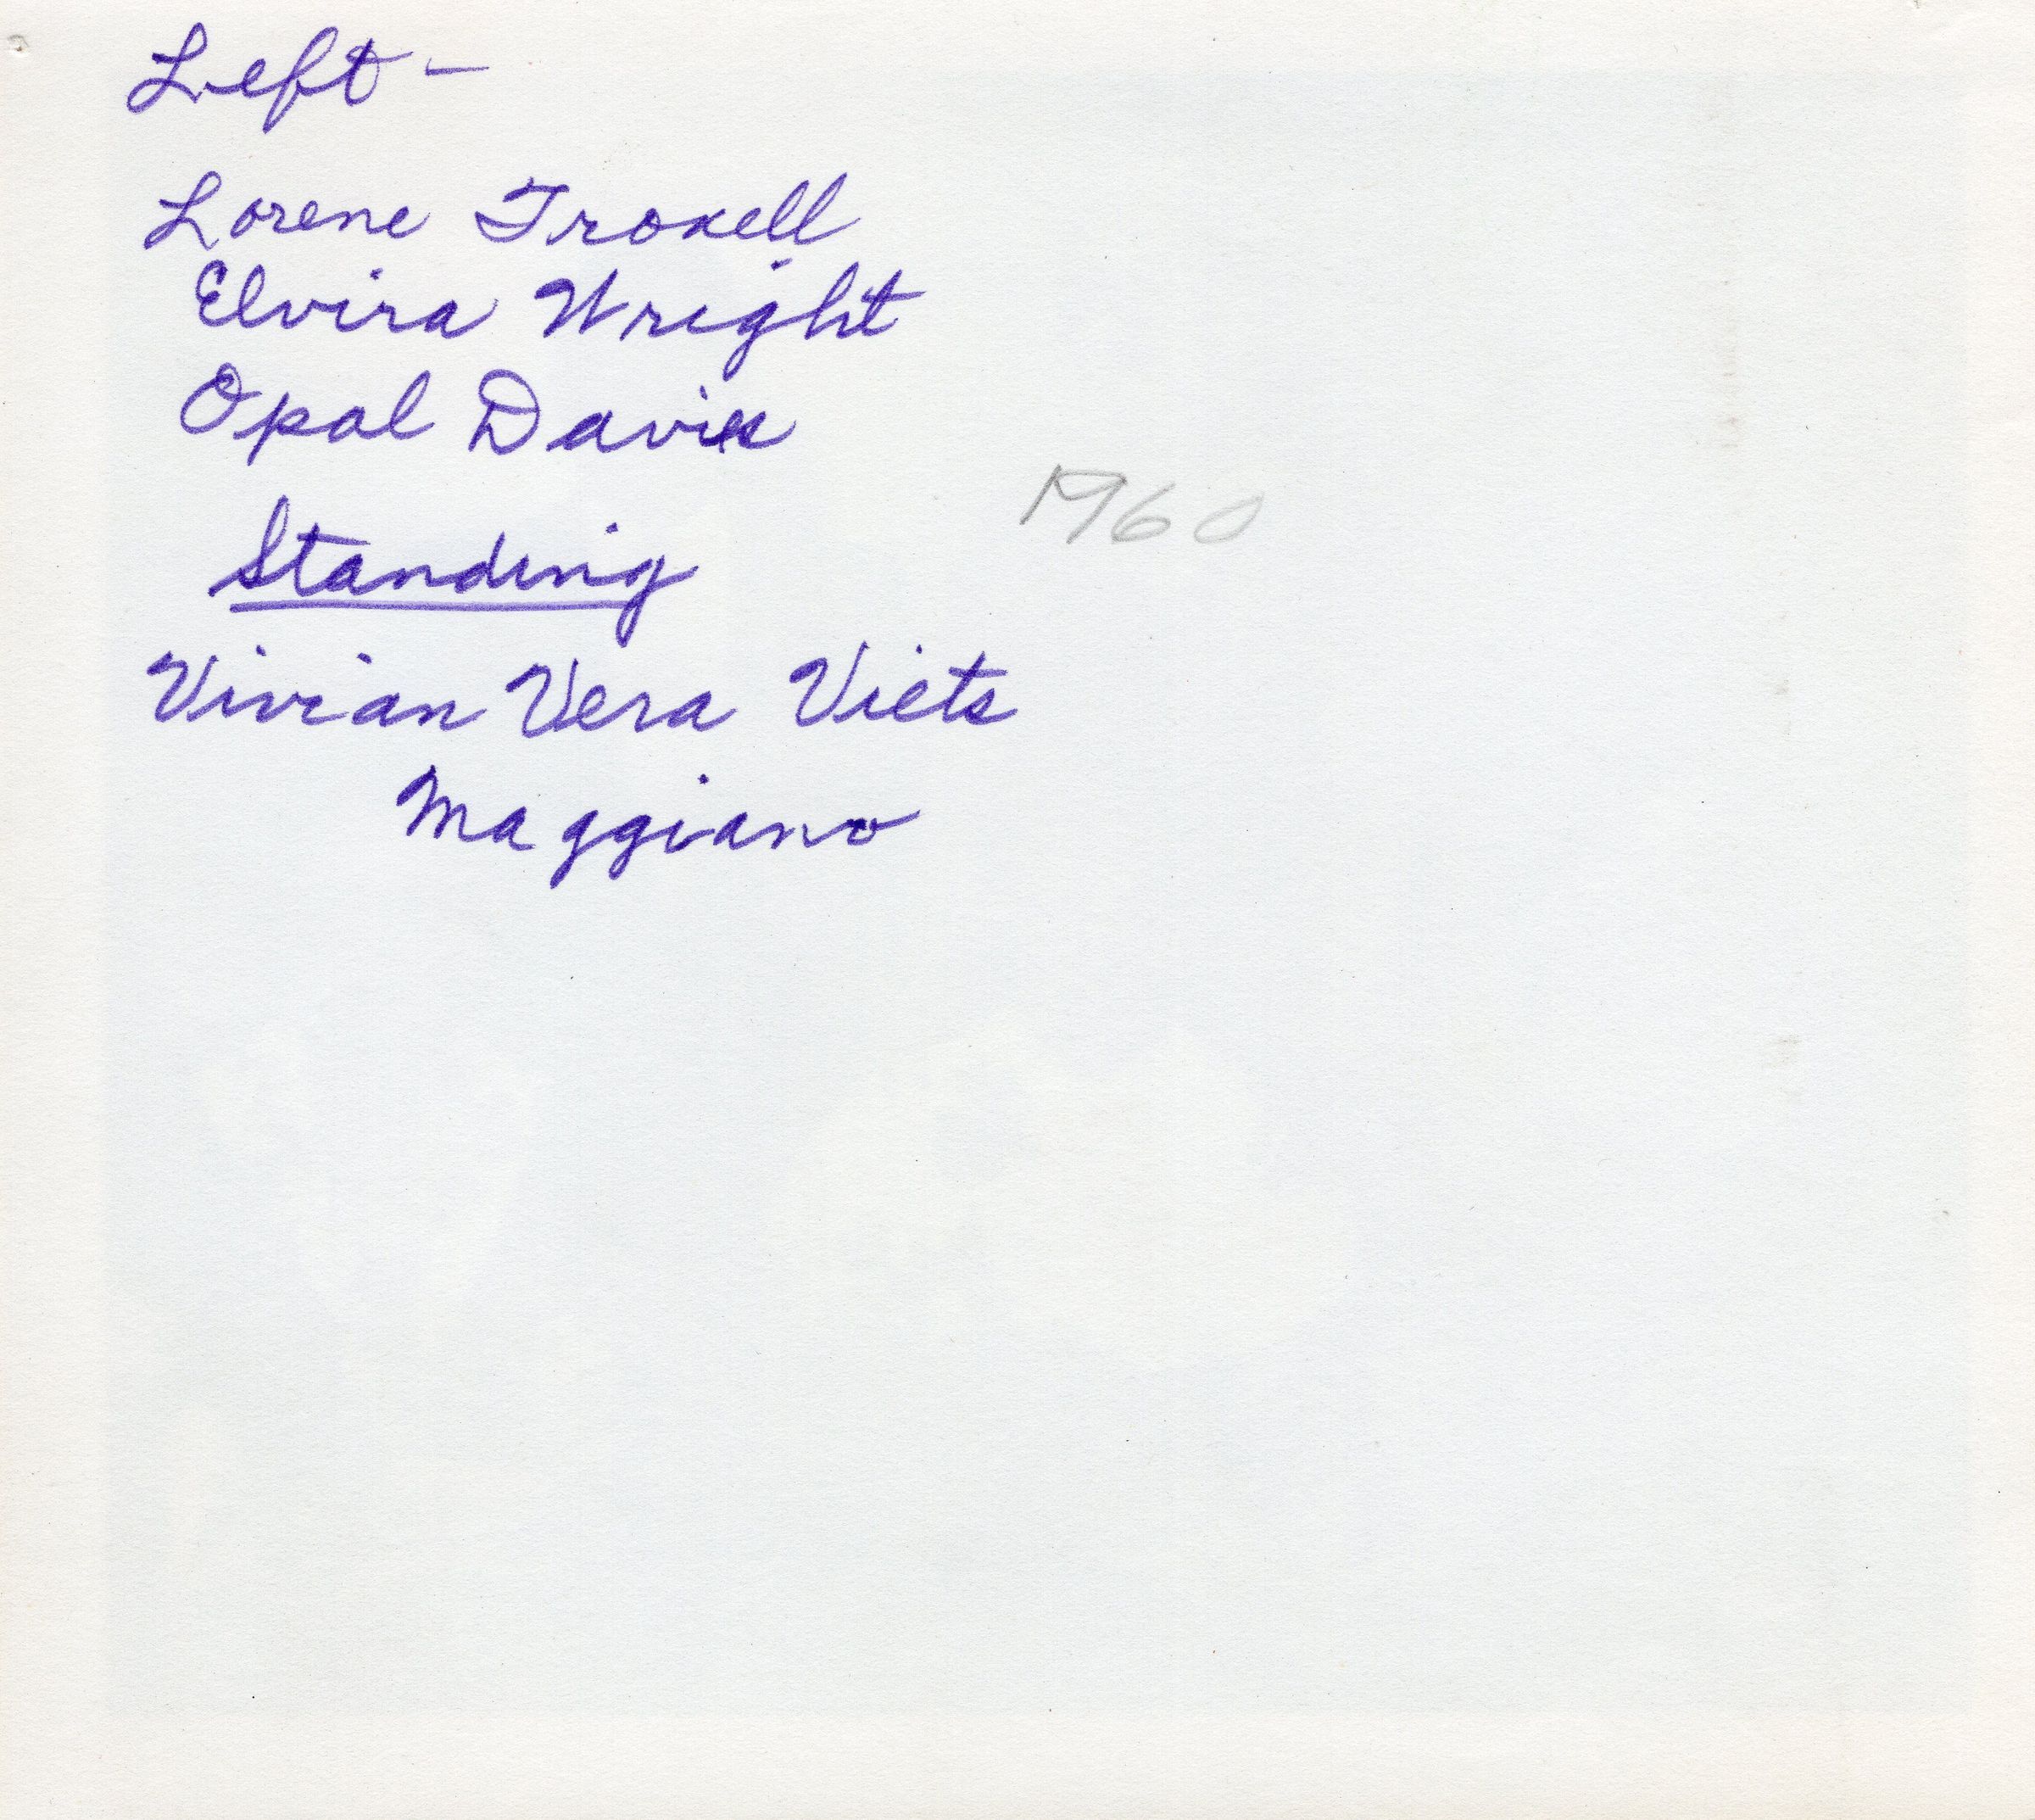 Left -
Lorene Troxell
Elvira Wright
Opal Davis
1960
Standing
Vivian Vera Viets
Maggiano